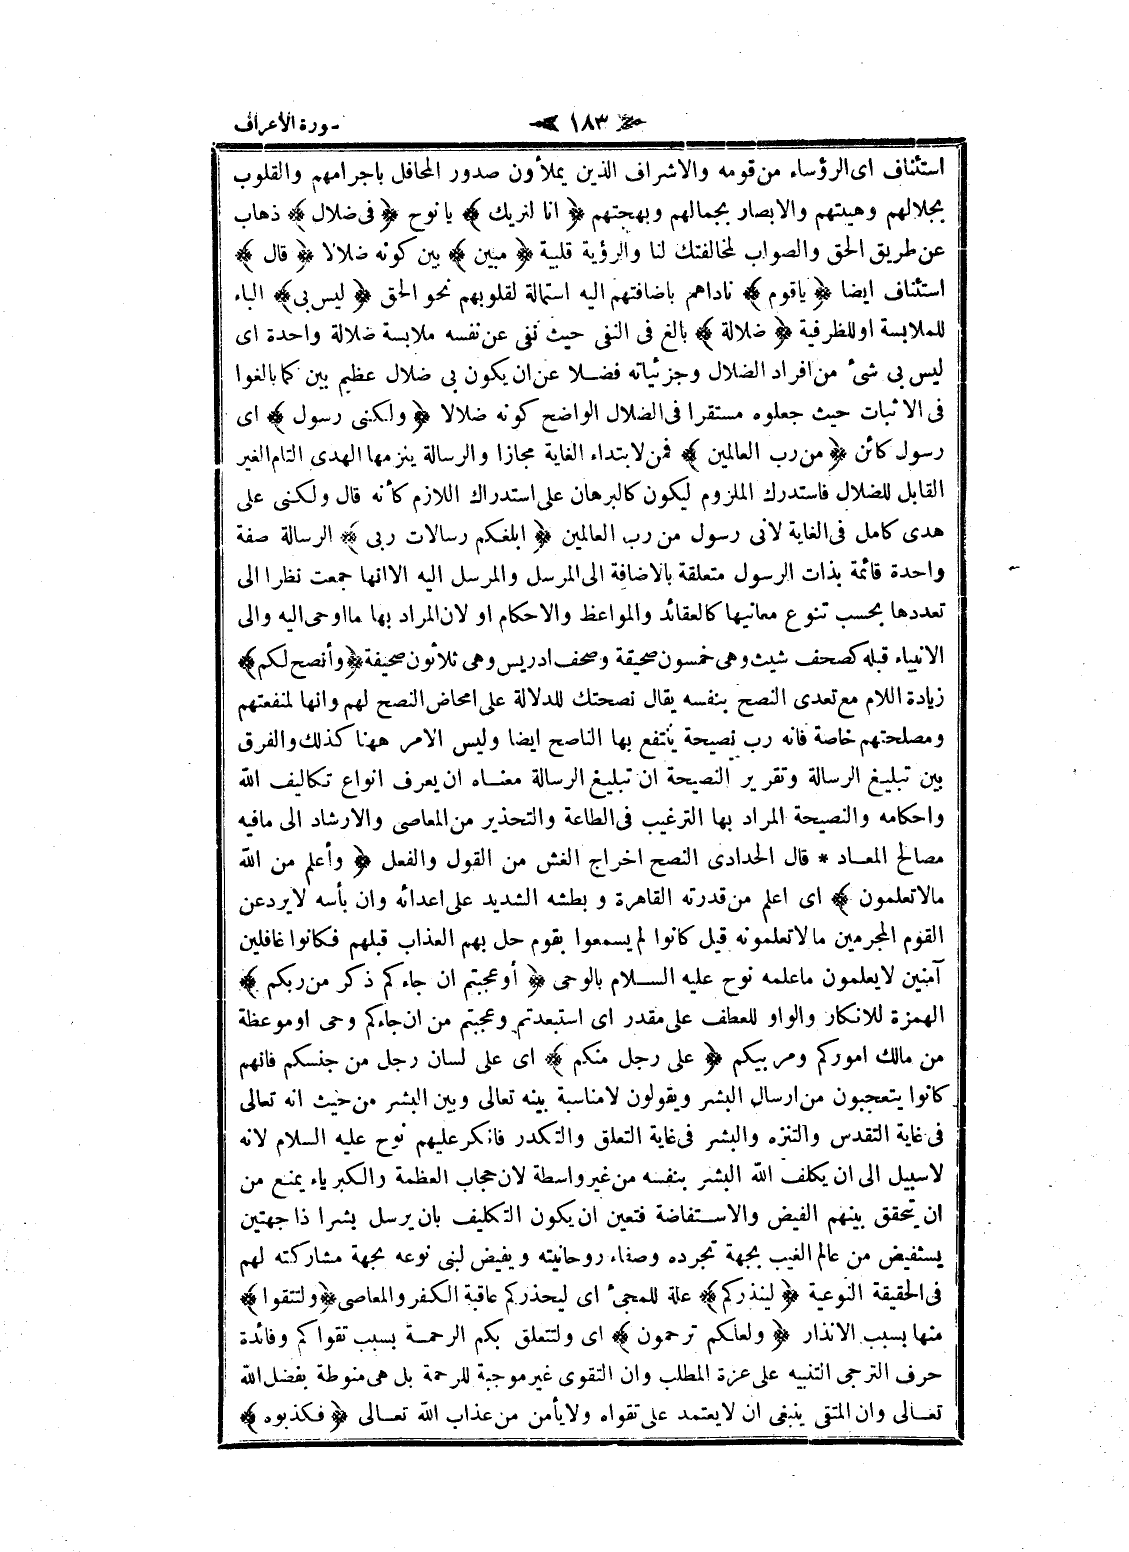 سورة الأعراف
١٨٣
استئناف اى الرؤساء من قومه والاشراف الذين يملأون صدور المحافل باجرامهم والقلوب
بجلالهم وهيبتهم والابصار بجمالهم وبهجتهم ﴿ انا لنريك ﴾ يا نوح ﴿ فى ضلال ﴾ ذهاب
عن طريق الحق والصواب لمخالفتك لنا والرؤية قلبية ﴿ مبين ﴾ بين كونه ضلالا ﴿ قال ﴾
استئناف ايضا ﴿ ياقوم ﴾ ناداهم باضافتهم اليه استمالة لقلوبهم نحو الحق ﴿ ليس بى ﴾ الباء
للملابسة او للظرفية ﴿ ضلالة ﴾ بالغ فى النفى حيث نفى عن نفسه ملابسة ضلالة واحدة اى
ليس بى شئ من افراد الضلال وجزئياته فضلا عن ان يكون بى ضلال عظيم بين كما بالغوا
فى الاثبات حيث جعلوه مستقرا فى الضلال الواضح كونه ضلالا ﴿ ولكنى رسول ﴾ اى
رسول كائن ﴿ من رب العالمين ﴾ فمن لابتداء الغاية مجازا والرسالة يلزمها الهدى التام الغير
القابل للضلال فاستدرك الملزوم ليكون كالبرهان على استدراك اللازم كأنه قال ولكنى على
هدى كامل فى الغاية لانى رسول من رب العالمين ﴿ ابلغكم رسالات ربى ﴾ الرسالة صفة
واحدة قائمة بذات الرسول متعلقة بالاضافة الى المرسل والمرسل اليه الا انها جمعت نظرا الى
تعددها بحسب تنوع معانيها كالعقائد والمواعظ والاحكام او لان المراد بها ما اوحى اليه والى
الانبياء قبله كصحف شيث وهى خمسون صحيفة وصحف ادريس وهى ثلاثون صحيفة ﴿ وأنصح لكم ﴾
زيادة اللام مع تعدى النصح بنفسه يقال نصحتك للدلالة على امحاض النصح لهم وانها لمنفعتهم
ومصلحتهم خاصة فانه رب نصيحة ينتفع بها الناصح ايضا وليس الامر ههنا كذلك والفرق
بين تبليغ الرسالة وتقرير النصيحة ان تبليغ الرسالة معناه ان يعرف انواع تكاليف الله
واحكامه والنصيحة المراد بها الترغيب فى الطاعة والتحذير من المعاصى والارشاد الى مافيه
مصالح المعاد * قال الحدادى النصح اخراج الغش من القول والفعل ﴿ وأعلم من الله
مالاتعلمون ﴾ اى اعلم من قدرته القاهرة وبطشه الشديد على اعدائه وان بأسه لايرد عن
القوم المجرمين مالاتعلمونه قيل كانوا لم يسمعوا بقوم حل بهم العذاب قبلهم فكانوا غافلين
آمنين لايعلمون ماعلمه نوح عليه السلام بالوحى ﴿ أوعجبتم ان جاءكم ذكر من ربكم ﴾
الهمزة للانكار والواو للعطف على مقدر اى استبعدتم وعجبتم من ان جاءكم وحى او موعظة
من مالك اموركم ومربيكم ﴿ على رجل منكم ﴾ اى على لسان رجل من جنسكم فانهم
كانوا يتعجبون من ارسال البشر ويقولون لامناسبة بينه تعالى وبين البشر من حيث انه تعالى
فى غاية التقدس والتنزه والبشر فى غاية التعلق والتكدر فانكر عليهم نوح عليه السلام لانه
لاسبيل الى ان يكلف الله البشر بنفسه من غير واسطة لان حجاب العظمة والكبرياء يمنع من
ان يتحقق بينهم الفيض والاستفاضة فتعين ان يكون التكليف بان يرسل بشرا ذا جهتين
يستفيض من عالم الغيب بجهة تجرده وصفاء روحانيته ويفيض لبنى نوعه بجهة مشاركته لهم
فى الحقيقة النوعية ﴿ لينذركم ﴾ علة للمجئ اى ليحذركم عاقبة الكفر والمعاصى ﴿ ولتتقوا ﴾
منها بسبب الانذار ﴿ ولعلكم ترحمون ﴾ اى ولتتعلق بكم الرحمة بسبب تقواكم وفائدة
حرف الترجى التنبيه على عزة المطلب وان التقوى غير موجبة للرحمة بل هى منوطة بفضل الله
تعالى وان المتقى ينبغى ان لايعتمد على تقواه ولايأمن من عذاب الله تعالى ﴿ فكذبوه ﴾